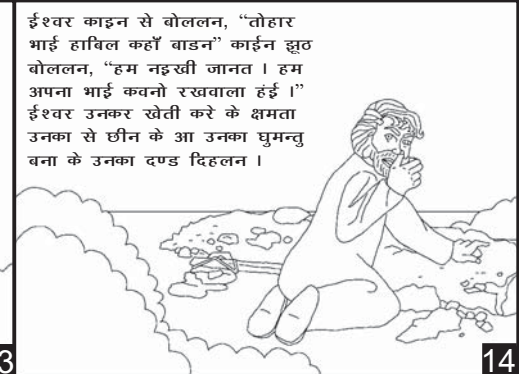 ईश्वर काइन से बोललन, “तोहार
भाई हाबिल कहाँ बाडन” काईन झूठ
बोललन, “हम नइखी जानत । हम
अपना भाई कवनो रखवाला हंई ।”
ईश्वर उनकर खेती करे के क्षमता
उनका से छीन के आ उनका घुमन्तु
बना के उनका दण्ड दिहलन ।
3
14